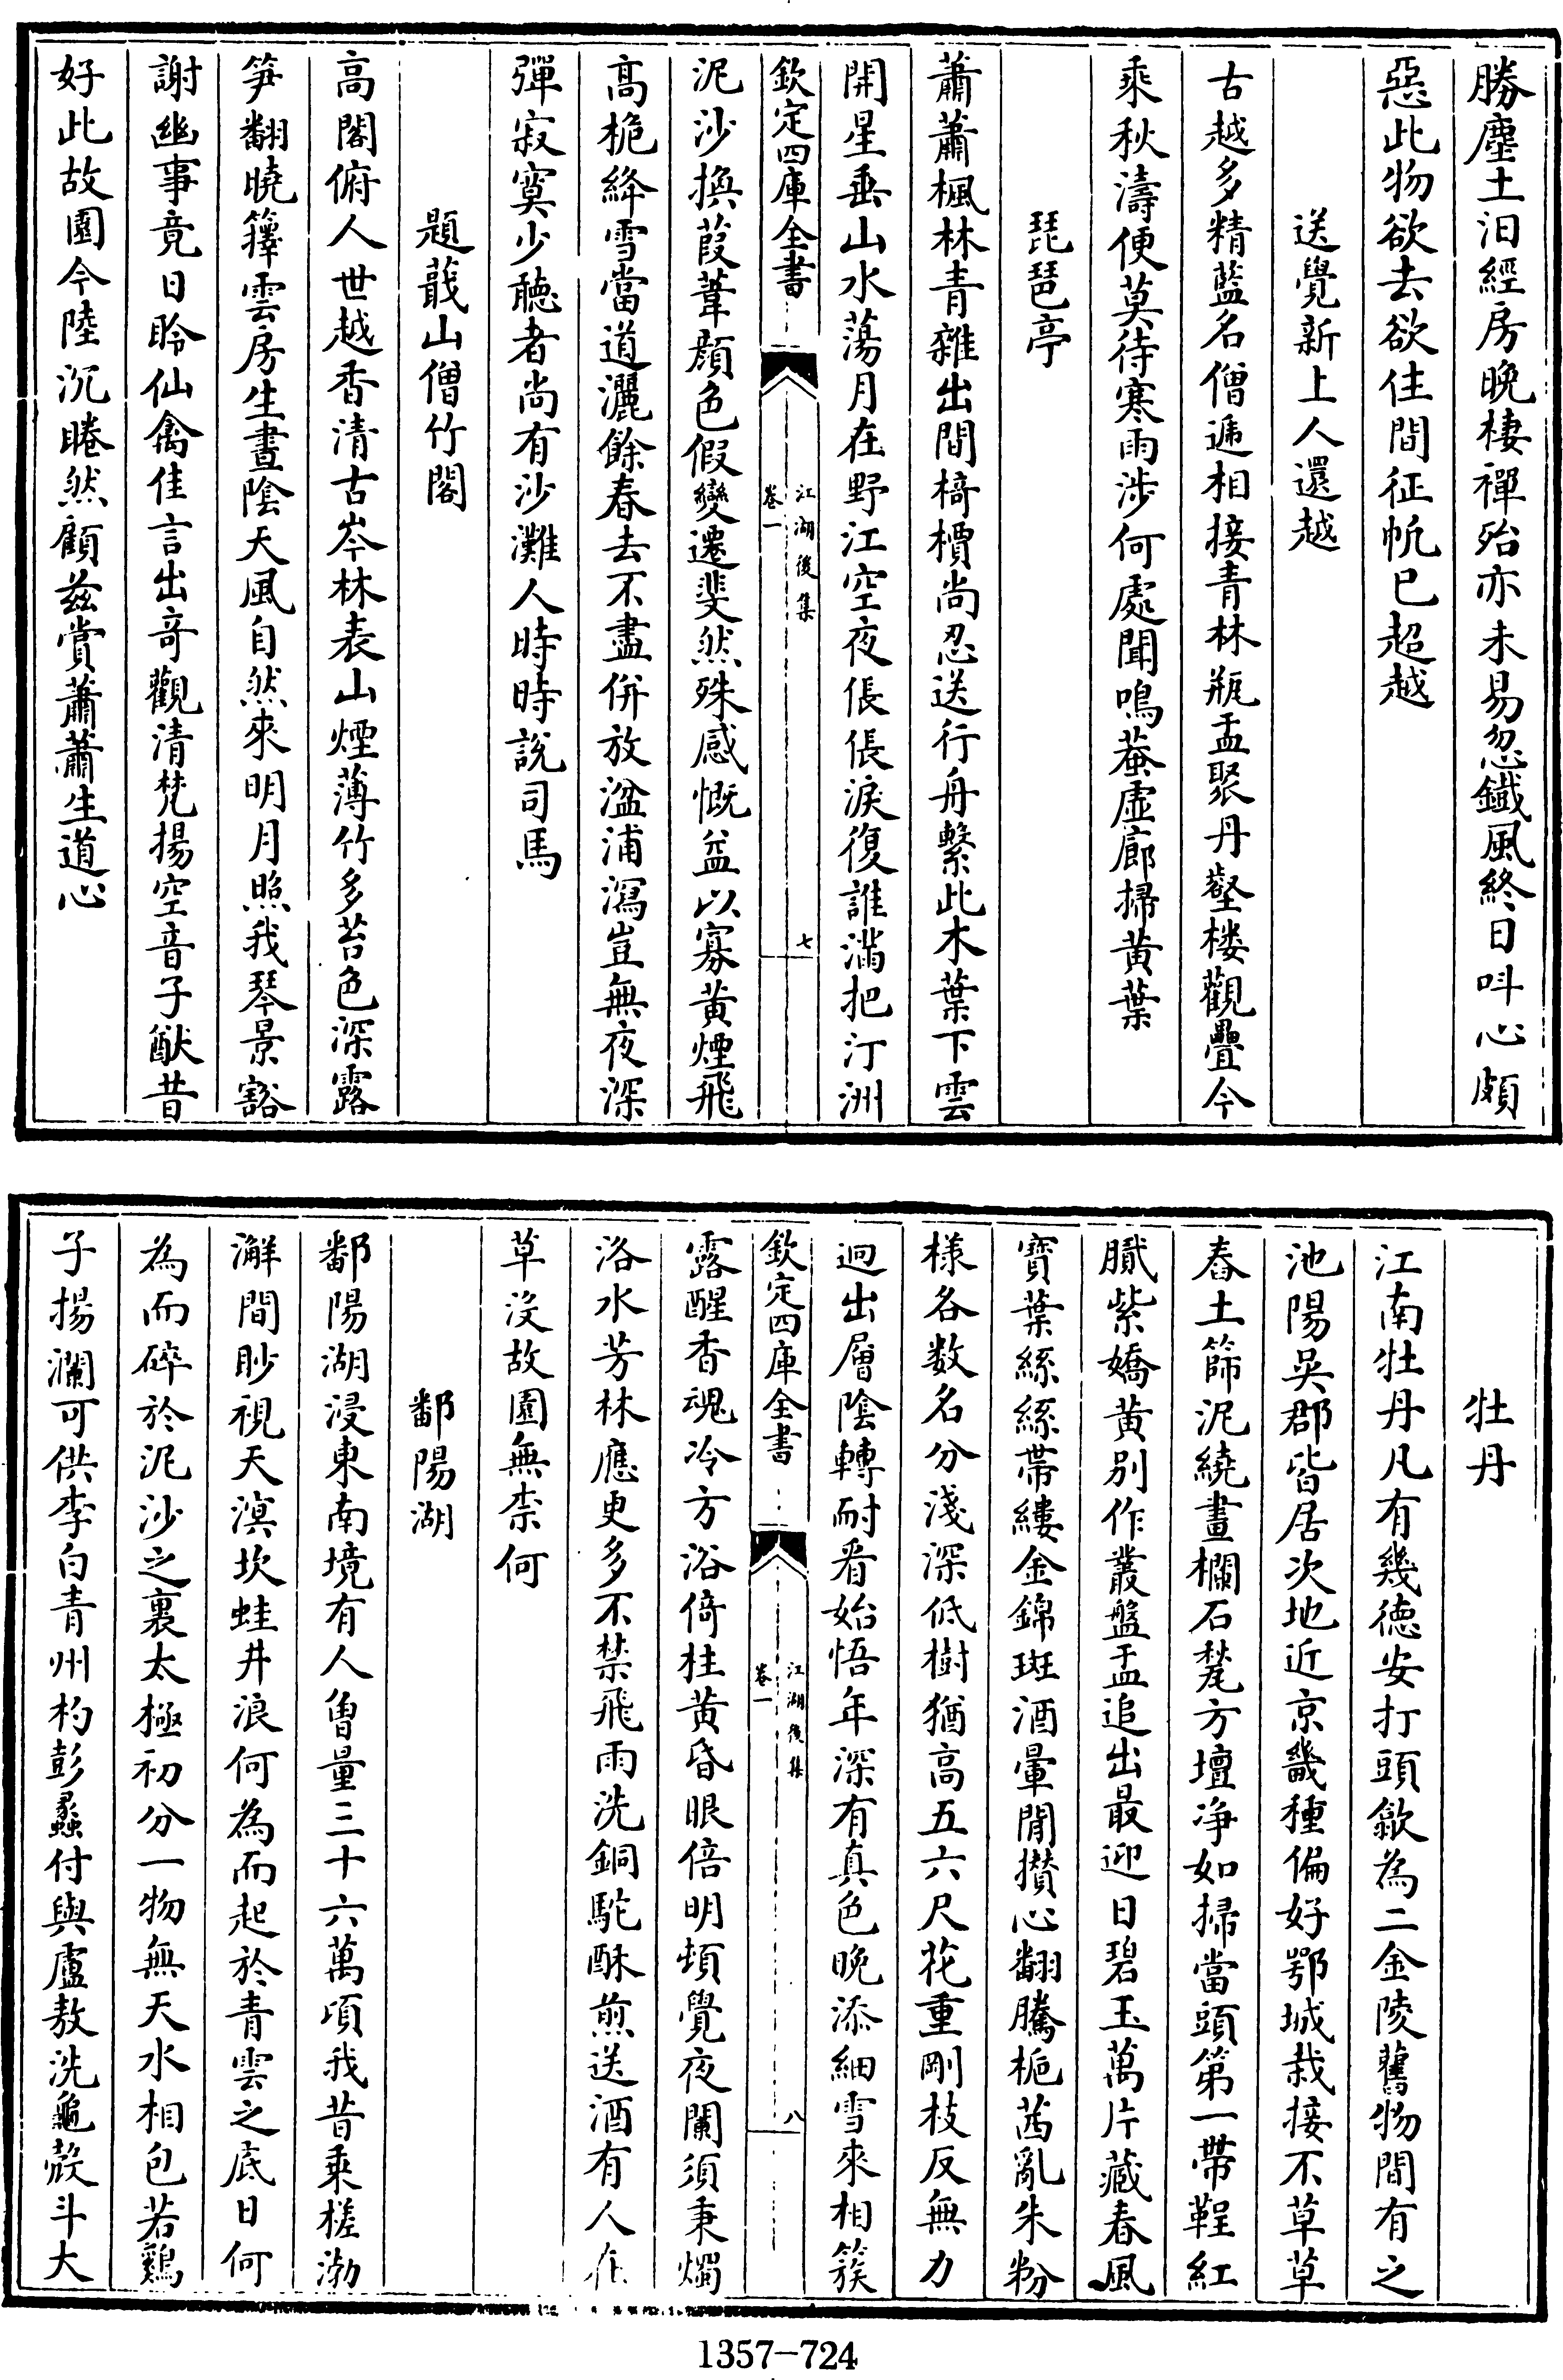 勝塵土汨經房晚棲禪殆亦未易忽鐵風終日呌心頗
惡此物欲去欲住間征帆已超越
送覺新上人還越
古越多精藍名僧遞相接青林瓶盂聚丹壑楼觀疊今
乘秋濤便莫待寒雨涉何處聞鳴蛬虛廊掃黄葉
琵琶亭
蕭蕭楓林青雜出間樆檟尚忍送行舟繫此木葉下雲
開星垂山水蕩月在野江空夜倀倀淚復誰滿把汀洲
欽定四庫全書
江湖後集
卷一
七
泥沙換葭葦顔色假變遷斐然殊感慨益以寡黄煙飛
高桅絳雪當道灑餘春去不盡併放湓浦瀉豈無夜深
彈寂寞少聽者尚有沙灘人時時說司馬
題蕺山僧竹閣
高閣俯人世越香清古岑林表山煙薄竹多苔色深露
笋翻曉籜雲房生晝陰天風自然來明月照我琴景豁
謝幽事竟日聆仙禽佳言出奇觀清梵揚空音子猷昔
好此故園今陸沉睠然顧兹賞蕭蕭生道心
牡丹
江南牡丹凡有幾德安打頭歙為二金陵舊物間有之
池陽吳郡皆居次地近京畿種偏好鄂城栽接不草草
舂土篩泥繞畫欄石甃方壇净如掃當頭第一帶鞓紅
膩紫嬌黄別作叢盤盂追出最迎日碧玉萬片藏春風
寶葉絲絲帶縷金錦斑酒暈閒攢心翻騰栀茜亂朱粉
様各数名分淺深低樹猶高五六尺花重剛枝反無力
迥出層陰轉耐看始悟年深有真色晚添細雪來相簇
欽定四庫全書
江湖後集
卷一
八
露醒香魂冷方浴倚柱黄昏眼倍明頓覺夜闌須秉燭
洛水芳林應更多不禁飛雨洗銅駝酥煎送酒有人在
草沒故園無柰何
鄱陽湖
鄱陽湖浸東南境有人曽量三十六萬頃我昔乘槎渤
澥間眇視天溟坎蛙井浪何為而起於青雲之底日何
為而碎於泥沙之裏太極初分一物無天水相包若鷄
子揚瀾可供李白青州杓彭蠡付與盧敖洗龜殼斗大
1357-724